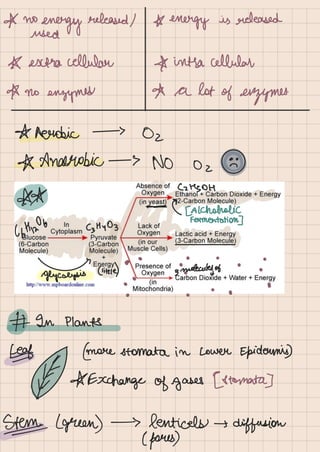 * no energy released/ used
* energy is released
* extra cellular
* intra cellular
* no enzymes
* a lot of enzymes
* Aerobic → O2
* Anaerobic → NO O2
Absence of Oxygen
(in yeast)
C2H5OH
Ethanol + Carbon Dioxide + Energy
(2-Carbon Molecule)
[Alchoholic Fermentation]
C6H12O6
Glucose
(6-Carbon Molecule)
In Cytoplasm
C3H4O3
Pyruvate
(3-Carbon Molecule)
+
Energy
(little)
Lack of Oxygen
(in our Muscle Cells)
Lactic acid + Energy
(3-Carbon Molecule)
glycolysis
Presence of Oxygen
(in Mitochondria)
3 molecules of
Carbon Dioxide + Water + Energy
http://www.mpboardonline.com
# In Plants
Leaf (more stomata in Lower Epidermis)
* Exchange of gases [stomata]
Stem (green) → lenticels → diffusion
(pores)